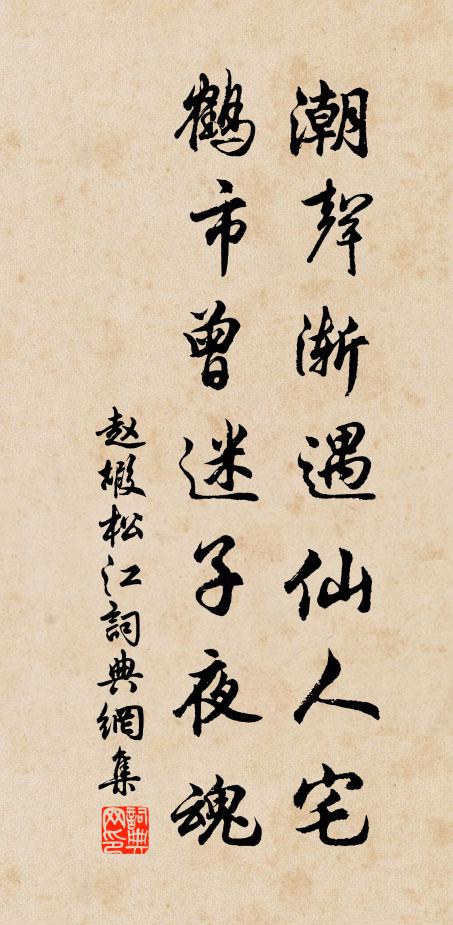 潮聲渐遇仙人宅
鶴市曾迷子夜魂
赵嘏松江詞典網集
詞典网印